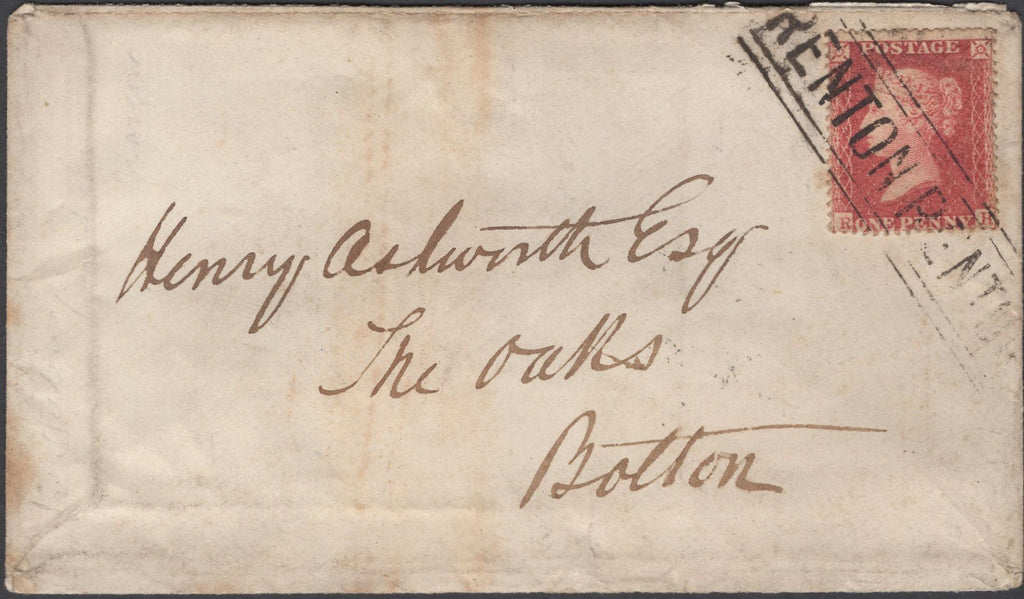 RENTON
POSTAGE
RENTON
R ONE PENNY H
Henry Ashworth Esq
The Oaks
Bolton